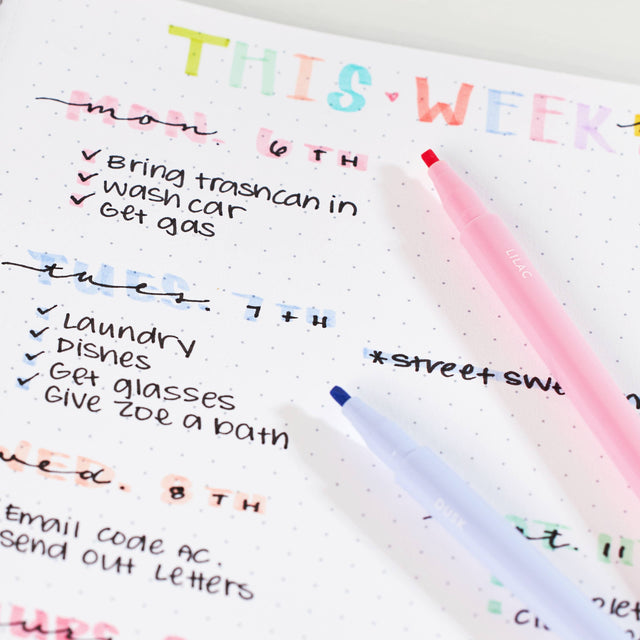 THIS WEEK
mon. 6TH
✓ Bring trashcan in
✓ wash car
✓ Get gas
tues. 7TH
✓ Laundry
✓ Dishes
✓ Get glasses
✓ Give Zoe a bath
*street
wed. 8TH
Email code AC.
send out Letters
11
LILAC
DUSK